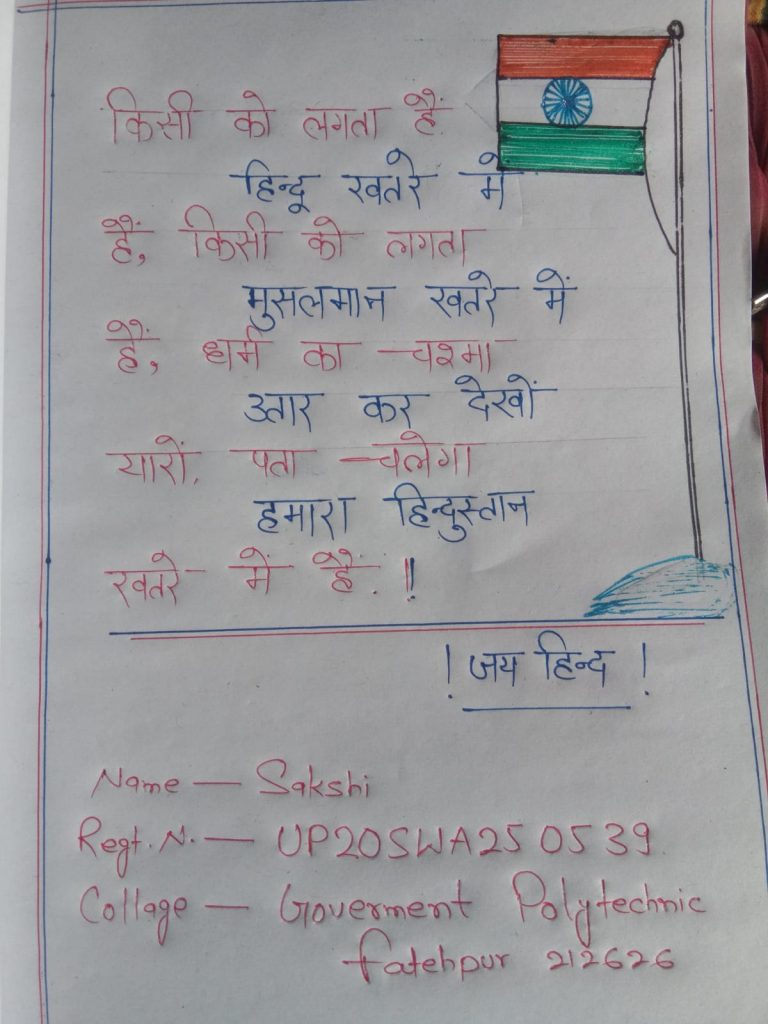 किसी को लगता हैं
हिन्दू खतरे में
हैं, किसी को लगता
मुसलमान खतरे में
हैं, धर्म का चश्मा
उतार कर देखों
यारों, पता चलेगा
हमारा हिन्दुस्तान
खतरे में हैं. !
! जय हिन्द !
Name — Sakshi
Regt. N. — UP20SWA250539
Collage — Goverment Polytechnic
Fatehpur 212626